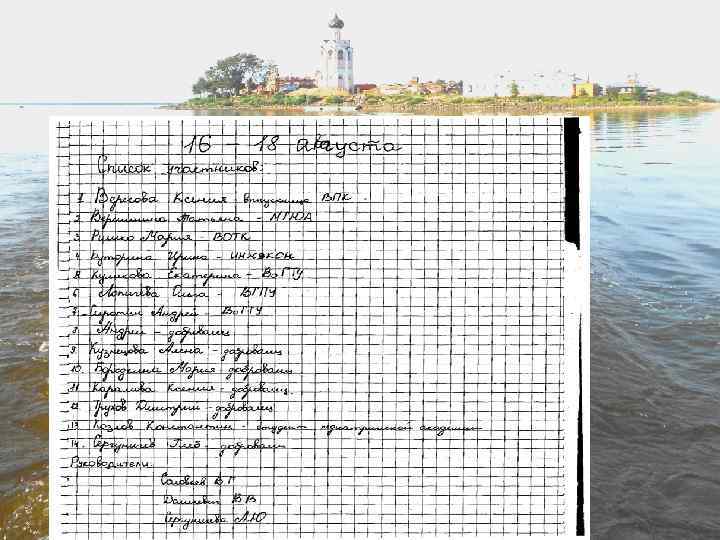 16 – 18 августа
Список участников:
1. Версова Ксения - выпускница ВПК.
2. Вершинина Татьяна - МГЮА
3. Рушко Мария - ВОТК
4. Буторина Ирина - ИНЖЭКОН
5. Куликова Екатерина - ВоГТУ
6. Лопичева Ольга - ВГПУ
7. Сиротин Андрей - ВоГТУ
8. Андрей - доброволец
9. Кузнецова Алена - доброволец
10. Бородкина Мария - доброволец
11. Каралива Ксения - доброволец.
12. Трухов Дмитрий - доброволец
13. Козлов Константин - студент академии
14. Сергуничев Глеб - доброволец
Руководители:
Соловьев В Г
Данилевич В В
Сергуничева Л.Ю